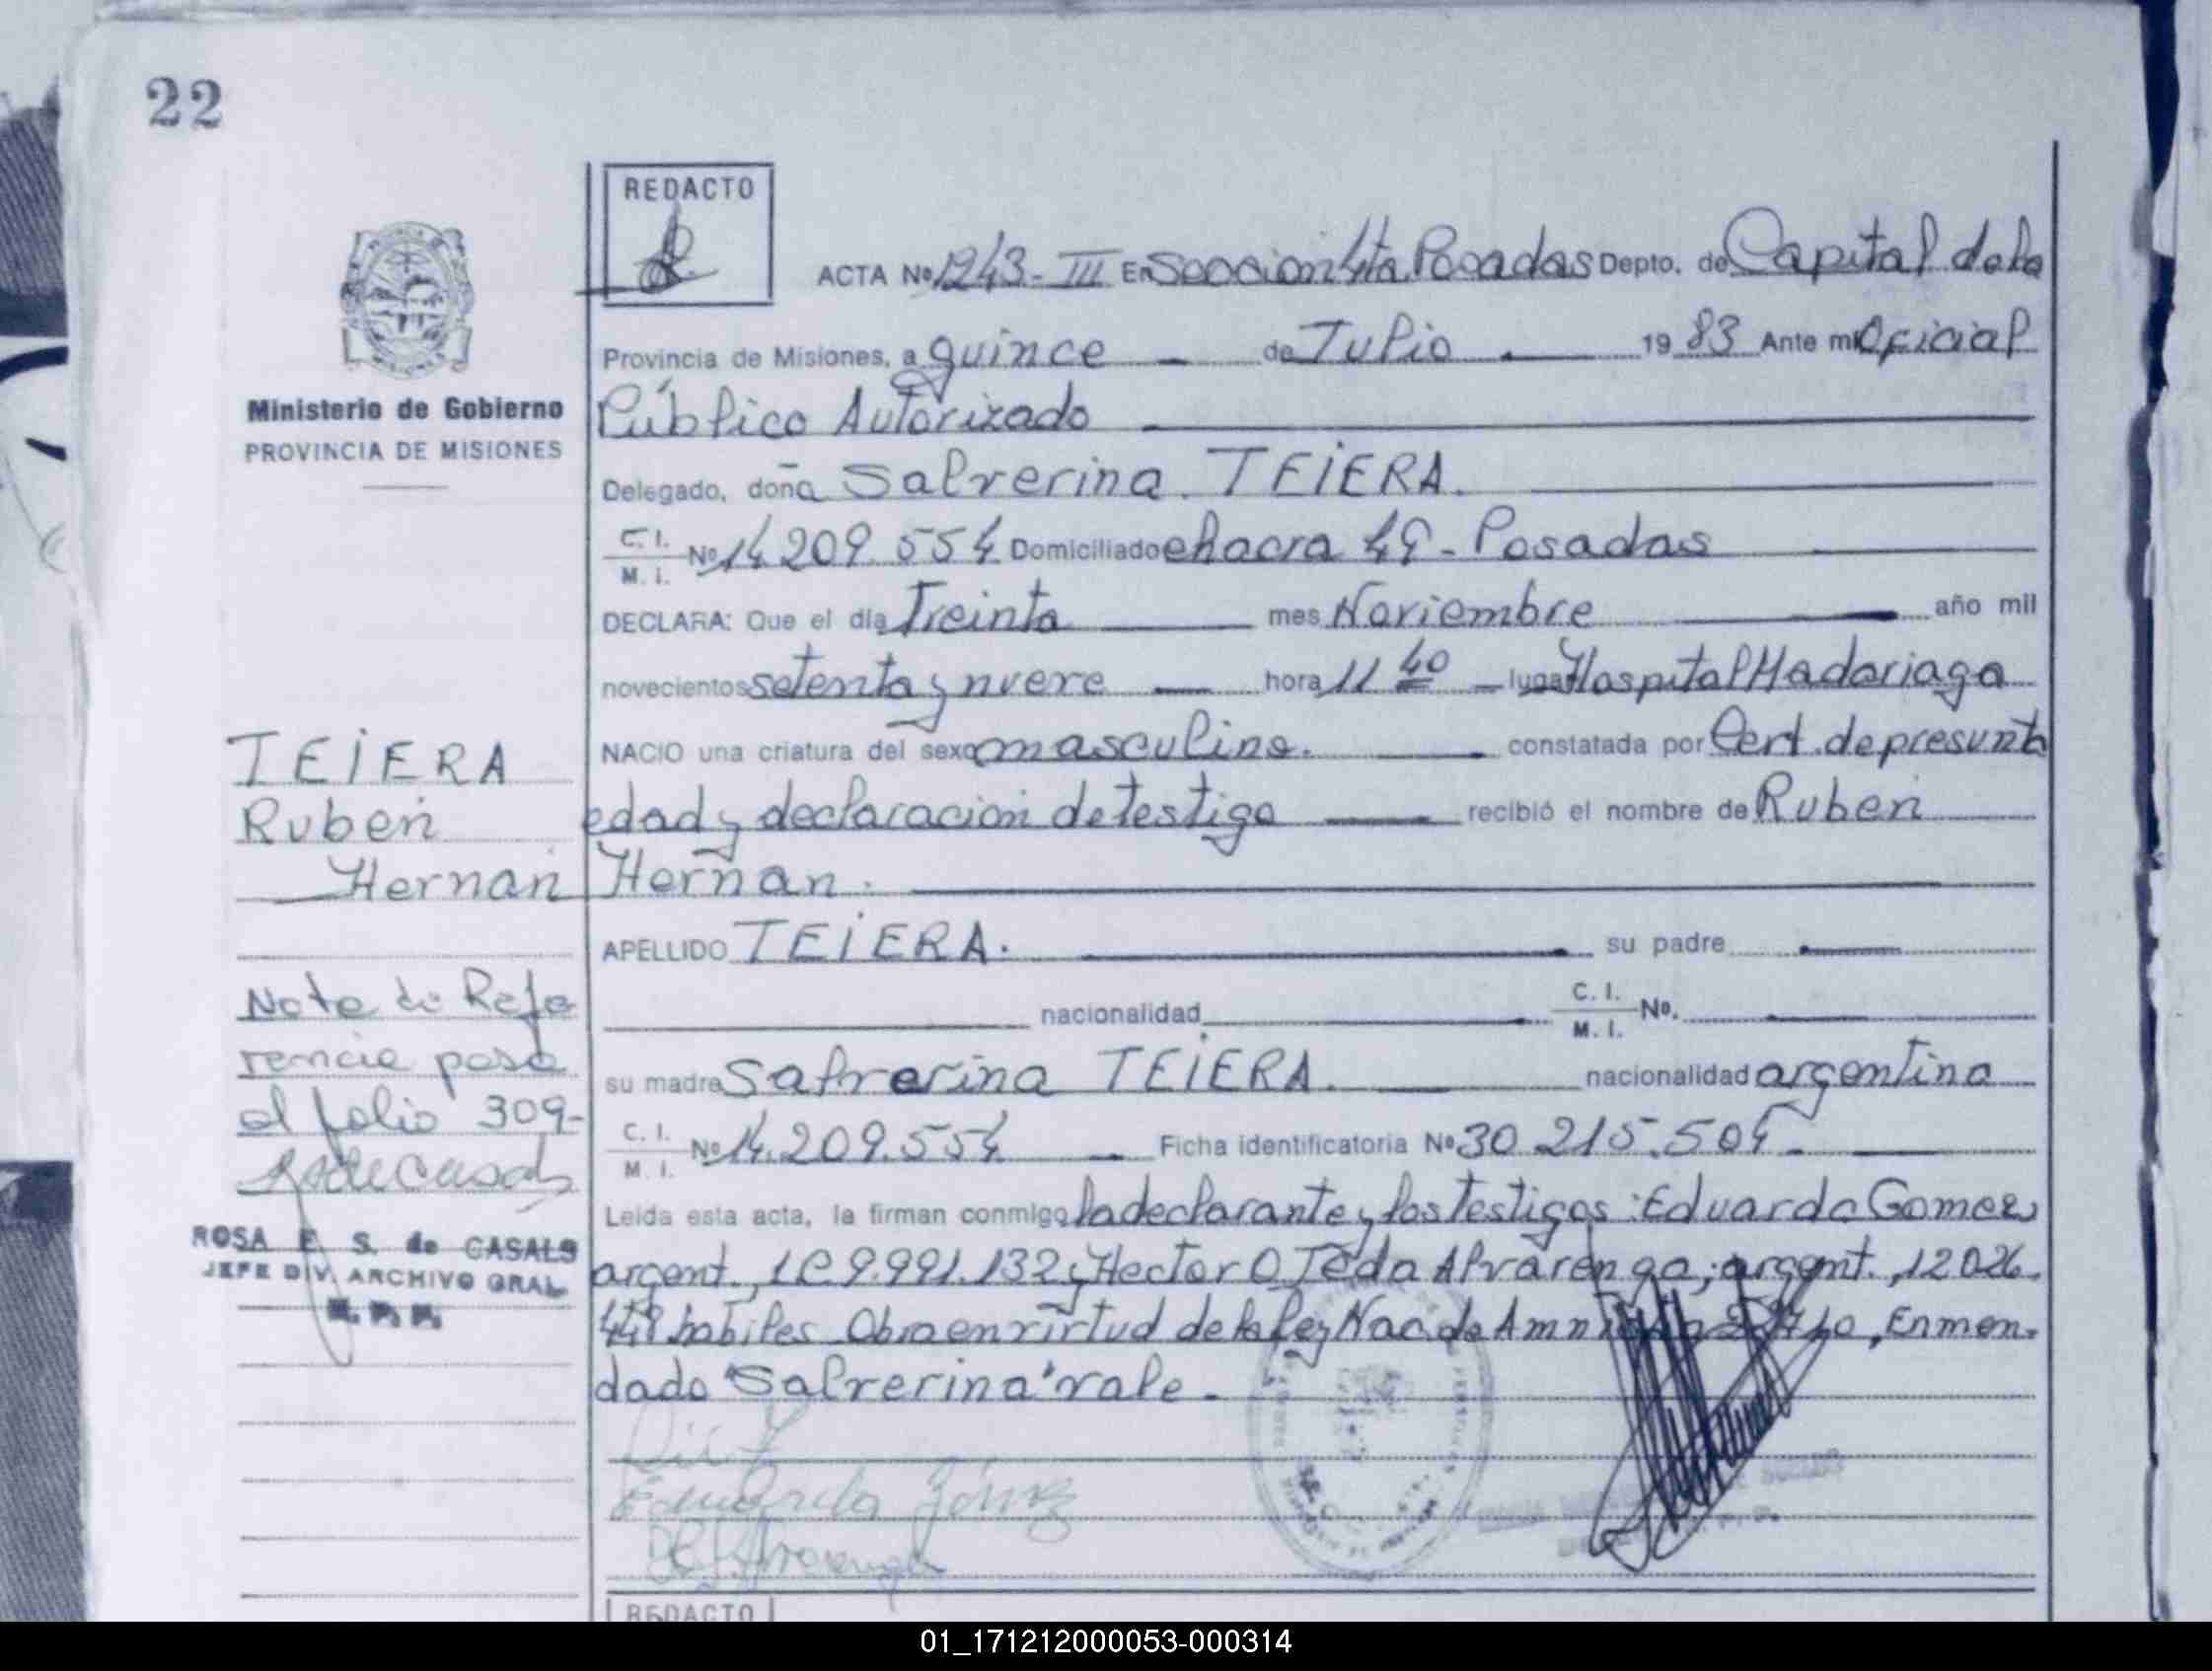 22
REDACTO
ACTA Nº 1243-III En Sección 4ta. Posadas Depto. de Capital de la
Provincia de Misiones, a quince de Julio 1983 Ante mi Oficial
Público Autorizado
Ministerio de Gobierno
PROVINCIA DE MISIONES
Delegado, doña Salverina TEIERA.
C. I. M. I. Nº 14 209.554 Domiciliado chacra 49 - Posadas
DECLARA: Que el día Treinta mes Noviembre año mil
novecientos setenta y nueve hora 11 40 lugar Hospital Madariaga
NACIO una criatura del sexo masculino. constatada por Cert. de presunta
edad y declaración de testigo recibió el nombre de Ruben
Hernan.
TEIERA
Ruben
Hernan
APELLIDO TEIERA. su padre
nacionalidad C. I. M. I. Nº.
su madre Salverina TEIERA. nacionalidad argentina
C. I. M. I. Nº 14.209.554 Ficha identificatoria Nº 30.215.504.
Leida esta acta, la firman conmigo la declarante y los testigos: Eduardo Gomez
argent., 9.991.132 y Hector O Alvarenga, argent., 12 026.
448 habiles. Obra en virtud de la Ley Nac. de , Enmen-
dado "Salverina" vale.
Nota de Refe
rencia pasa
al folio 309-
ROSA E. S. de CASALS
JEFE DIV. ARCHIVO GRAL.
R. P. P.
Eduardo Gómez
REDACTO
01_171212000053-000314